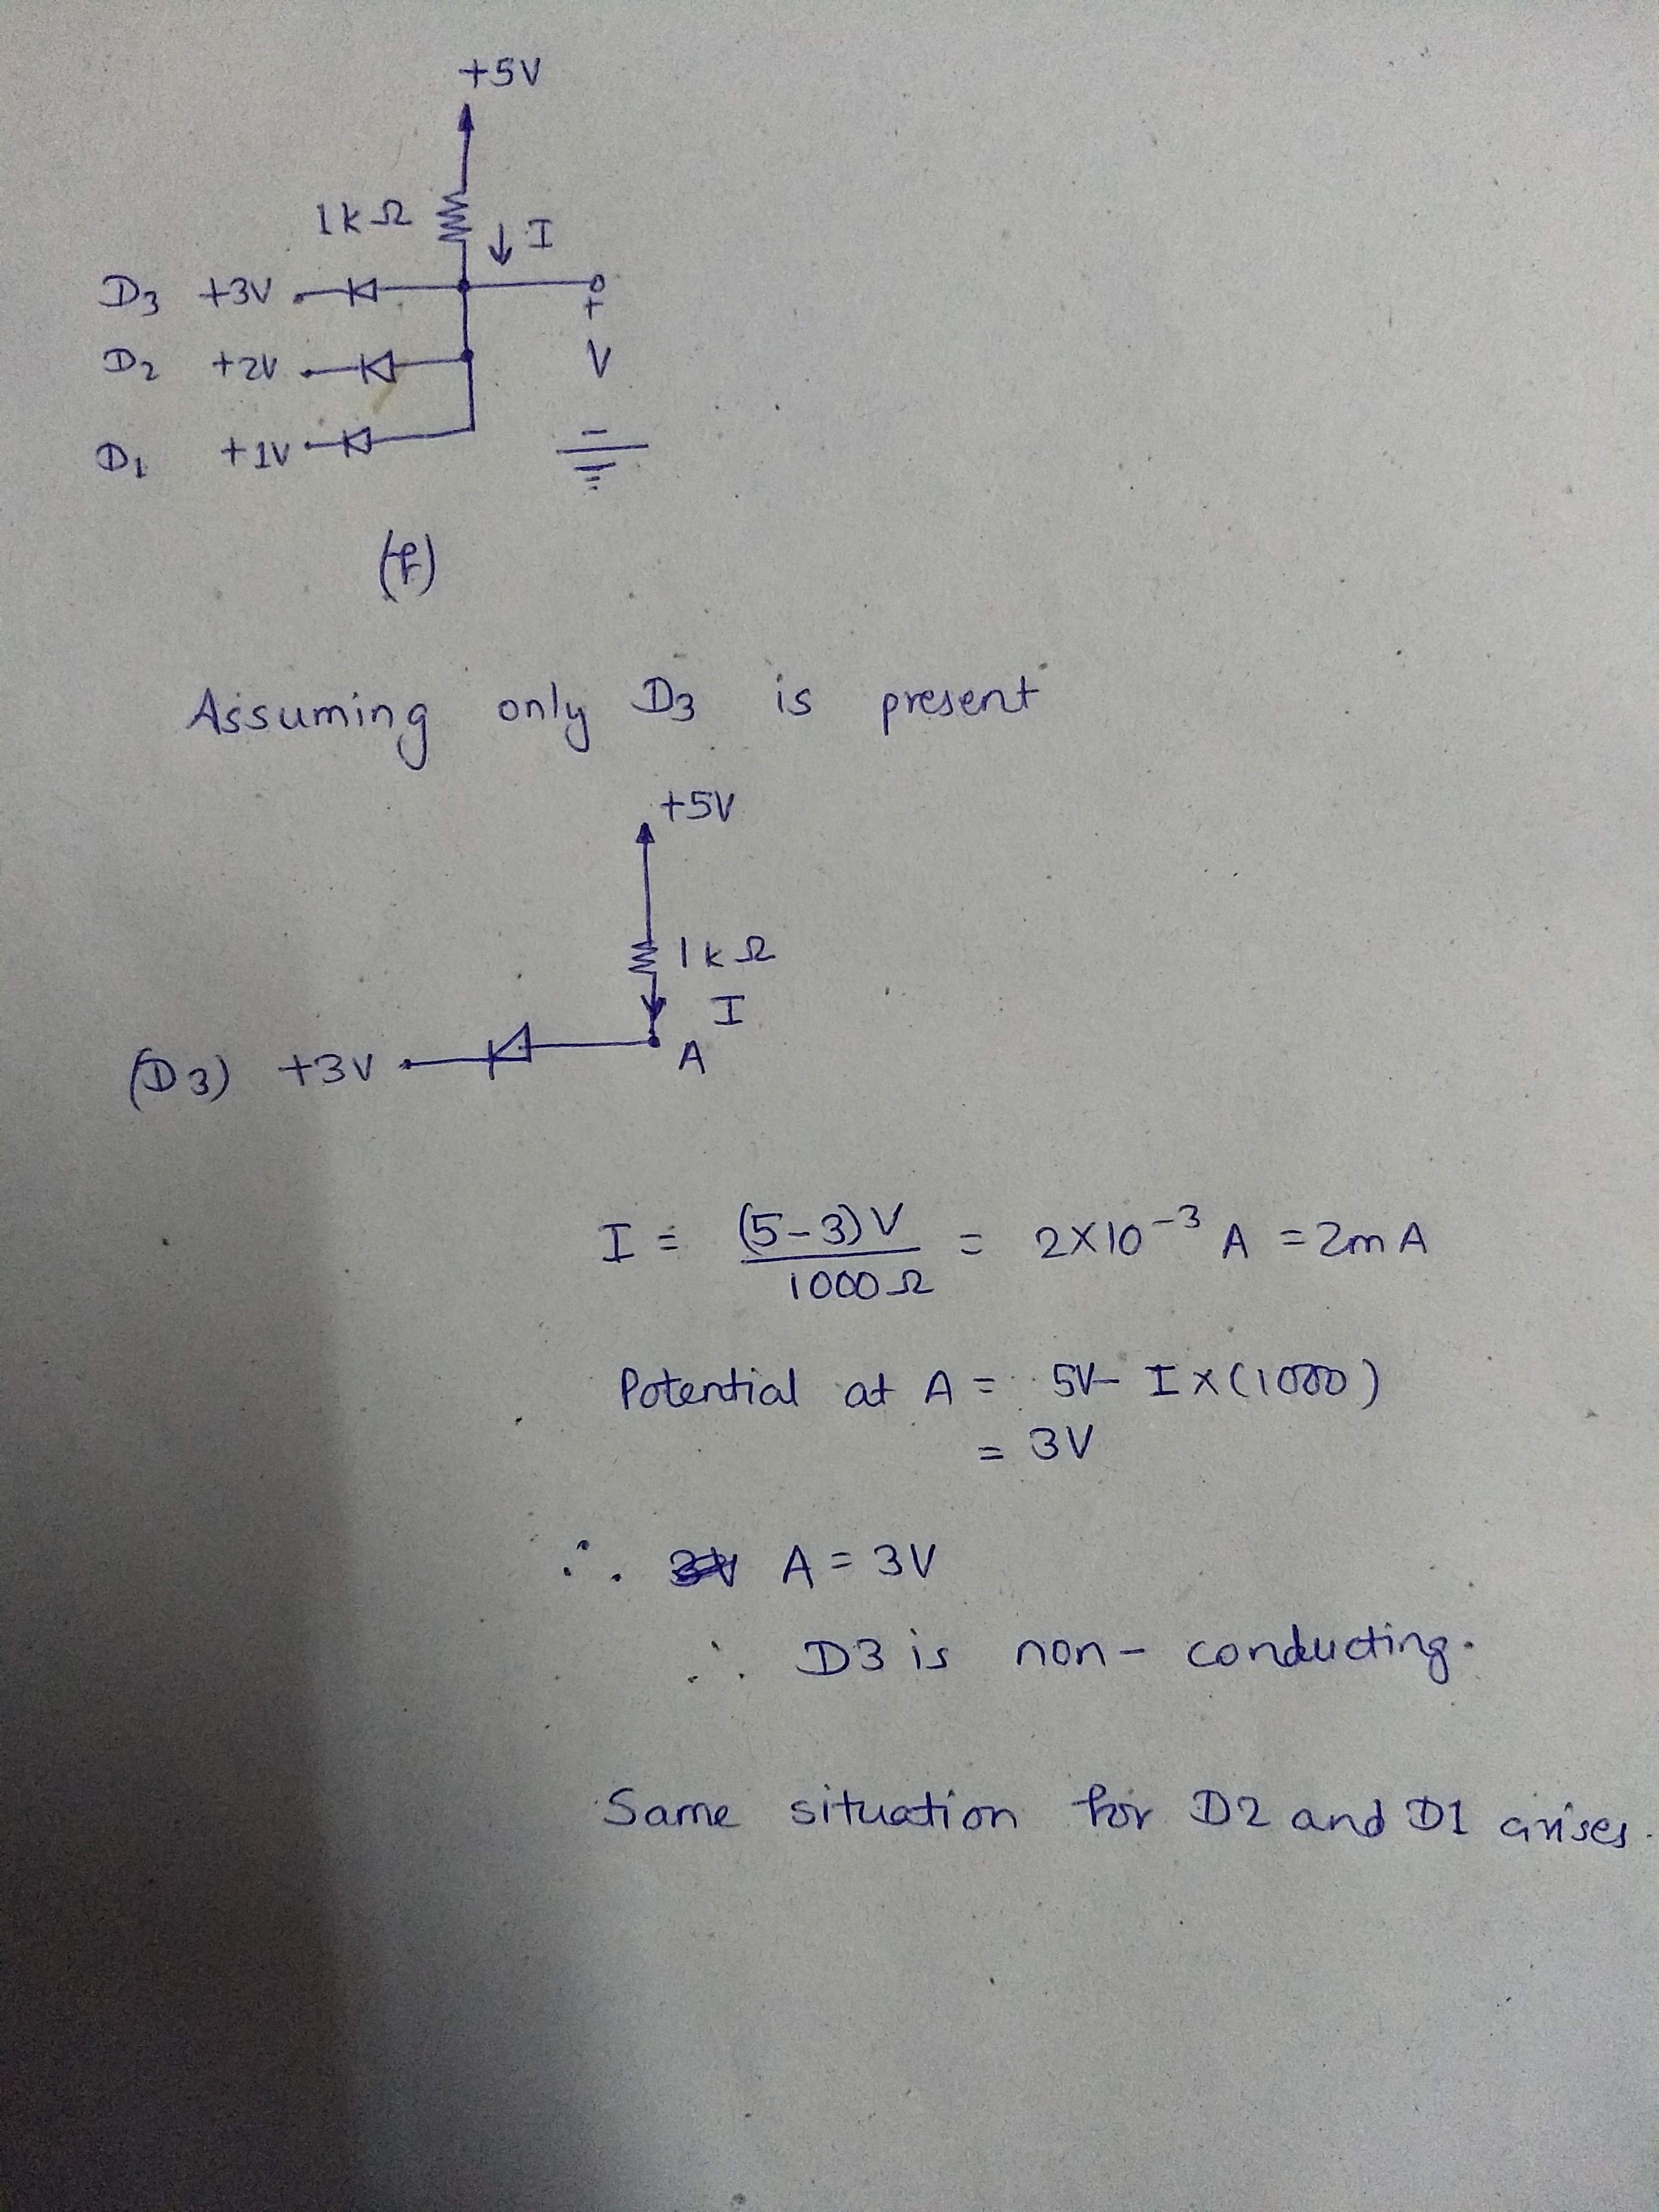 +5V
1kΩ ↓ I
D3 +3V
+
D2 +2V V
-
D1 +1V
(f)
Assuming only D3 is present
+5V
1kΩ
I
(D3) +3V A
I = (5-3)V / 1000Ω = 2×10^-3 A = 2mA
Potential at A = 5V- I×(1000)
= 3V
∴ A = 3V
∴ D3 is non-conducting.
Same situation for D2 and D1 arises.